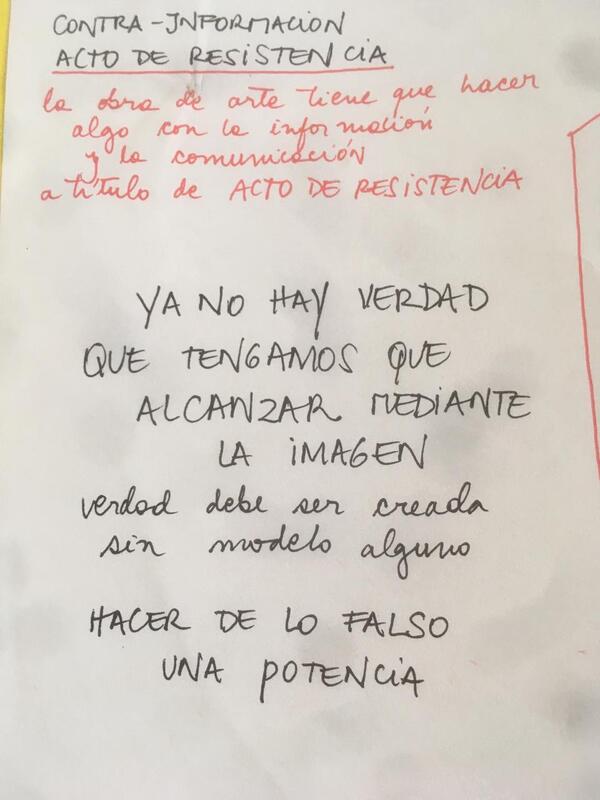 CONTRA-INFORMACION
ACTO DE RESISTENCIA
la obra de arte tiene que hacer
algo con la información
y la comunicación
a título de ACTO DE RESISTENCIA
YA NO HAY VERDAD
QUE TENGAMOS QUE
ALCANZAR MEDIANTE
LA IMAGEN
verdad debe ser creada
sin modelo alguno
HACER DE LO FALSO
UNA POTENCIA